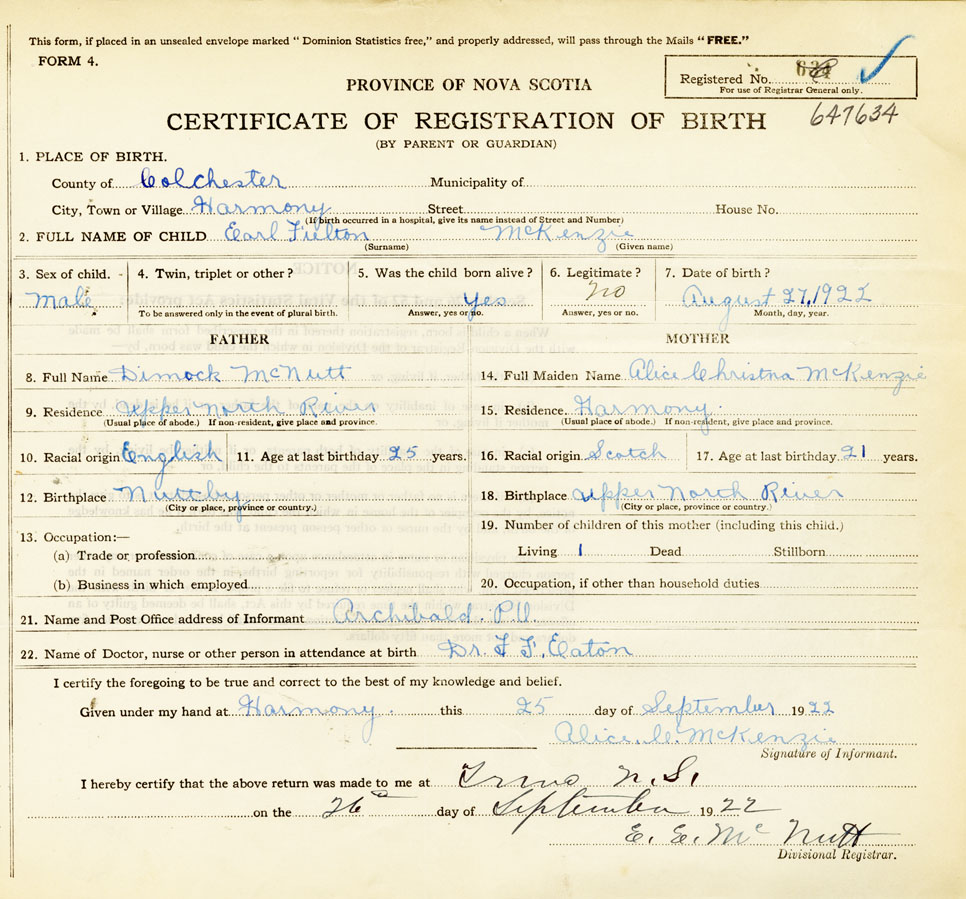 This form, if placed in an unsealed envelope marked " Dominion Statistics free," and properly addressed, will pass through the Mails "FREE."
FORM 4.
Registered No.
For use of Registrar General only.
PROVINCE OF NOVA SCOTIA
647634
CERTIFICATE OF REGISTRATION OF BIRTH
(BY PARENT OR GUARDIAN)
1. PLACE OF BIRTH.
County of Colchester Municipality of
City, Town or Village Harmony Street House No.
(If birth occurred in a hospital, give its name instead of Street and Number)
2. FULL NAME OF CHILD Earl Fulton McKenzie
(Surname) (Given name)
3. Sex of child. 4. Twin, triplet or other? 5. Was the child born alive? 6. Legitimate? 7. Date of birth?
Male Yes No August 27, 1922
To be answered only in the event of plural birth. Answer, yes or no. Answer, yes or no. Month, day, year.
FATHER MOTHER
8. Full Name Dimock McNutt 14. Full Maiden Name Alice Christna McKenzie
9. Residence Upper North River 15. Residence Harmony
(Usual place of abode.) If non-resident, give place and province. (Usual place of abode.) If non-resident, give place and province.
10. Racial origin English 11. Age at last birthday 25 years. 16. Racial origin Scotch 17. Age at last birthday 21 years.
12. Birthplace Nuttby 18. Birthplace Upper North River
(City or place, province or country.) (City or place, province or country.)
13. Occupation:— 19. Number of children of this mother (including this child.)
(a) Trade or profession Living 1 Dead Stillborn
(b) Business in which employed 20. Occupation, if other than household duties
21. Name and Post Office address of Informant Archibald. P.O.
22. Name of Doctor, nurse or other person in attendance at birth Dr. F F. Eaton
I certify the foregoing to be true and correct to the best of my knowledge and belief.
Given under my hand at Harmony this 25 day of September 1922
Alice. C. McKenzie
Signature of Informant.
I hereby certify that the above return was made to me at Truro N.S.
on the 26th day of September 1922
E. E. McNutt
Divisional Registrar.